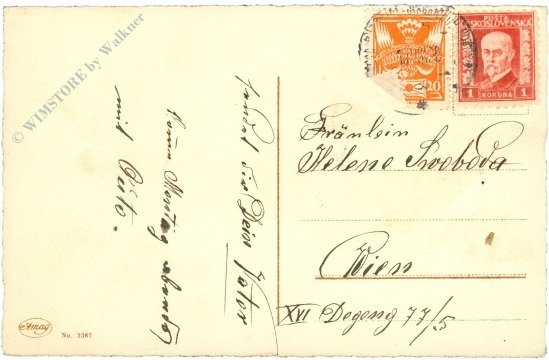 © WIMSTORE by Walkner
POSTA
ČESKOSLOVENSKÁ
1 KORUNA 1
20
Fräulein
Helene Swoboda
Wien
XVI Degeng 77/5
sendet dir Dein Vater
komme Montag abends
mit Auto.
Amag
No. 2367